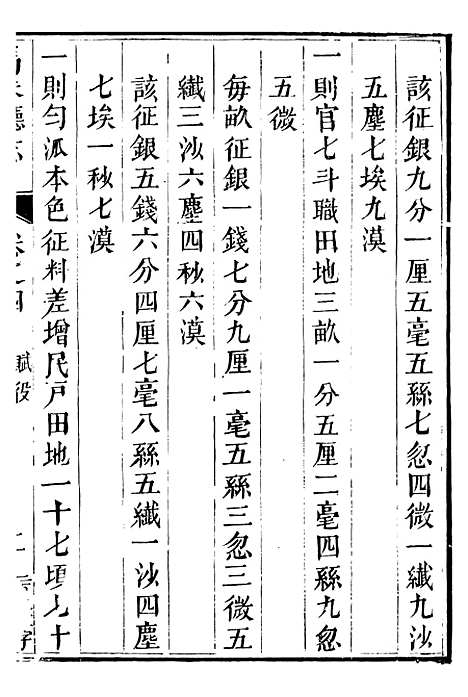 該征銀九分一厘五毫五絲七忽四微一纖九沙
五塵七埃九漠
一則官七斗職田地三畝一分五厘二毫四絲九忽
五微
每畝征銀一錢七分九厘一毫五絲三忽三微五
纖三沙六塵四秒六漠
該征銀五錢六分四厘七毫八絲五纖一沙四塵
七埃一秒七漠
一則勻派本色征料差增民戶田地一十七頃七十
卷之四 賦役